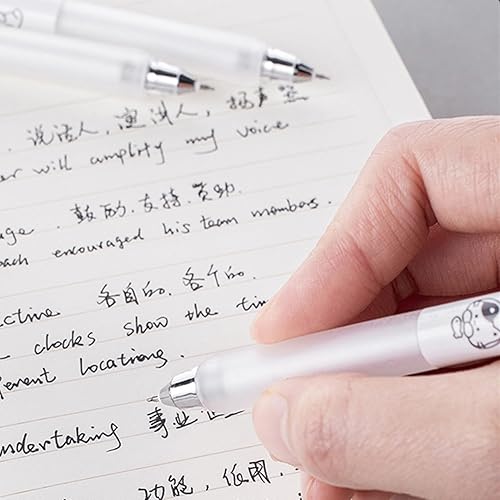 说话人,演讲人,扬声器
er will amplify my voice
age. 鼓励.支持.资助.
oach encouraged his team members.
ective 各自的.各个的.
clocks show the tim
fferent locations.
ndertaking 事业
功能,作用.